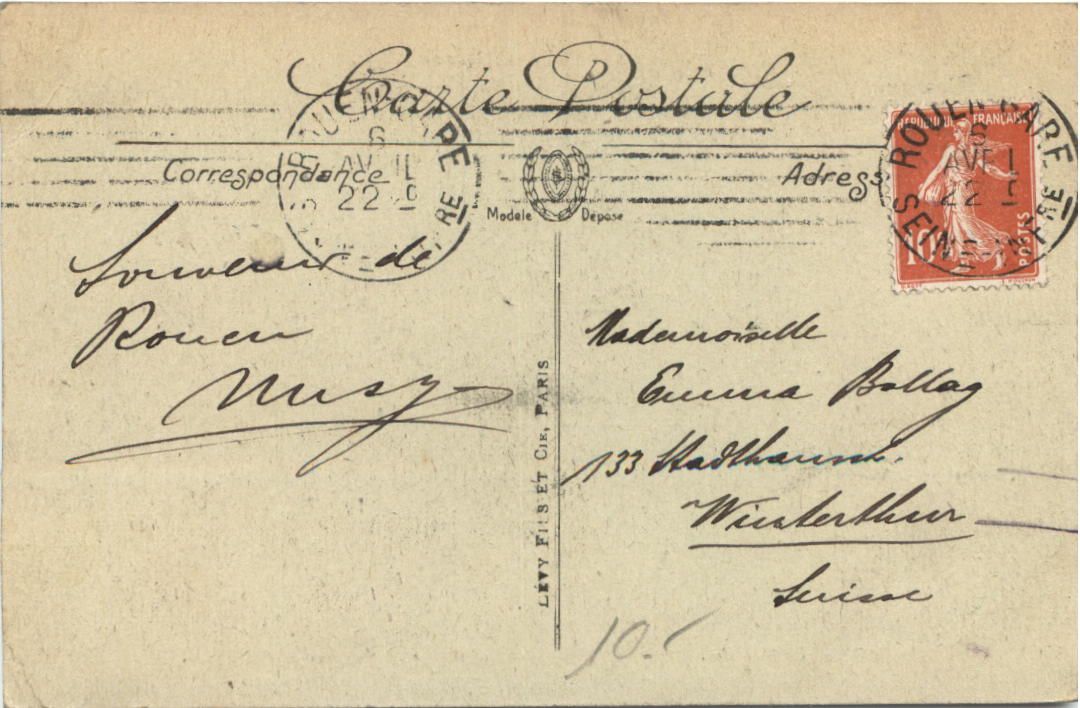 Carte Postale
Correspondance
Adresse
Modèle Déposé
ROUEN GARE
6
AVRIL
22
SEINE INFRE
REPUBLIQUE FRANÇAISE
10
POSTES
ROUEN GARE
6
AVRIL
22
SEINE INFRE
Souvenir de
Rouen
LÉVY FILS ET CIE, PARIS
Mademoiselle
Emma Bollag
133 Stadthausstr.
Winterthur
Suisse
10.-